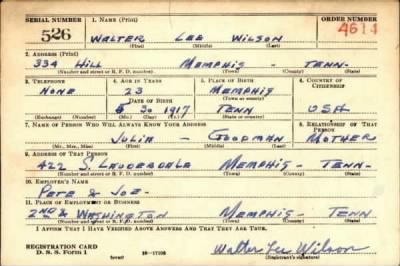 SERIAL NUMBER 1. NAME (Print) ORDER NUMBER
526 WALTER LEE WILSON 4614
(First) (Middle) (Last)
2. ADDRESS (Print)
334 HILL MEMPHIS - TENN-
(Number and street or R. F. D. number) (Town) (County) (State)
3. TELEPHONE 4. AGE IN YEARS 5. PLACE OF BIRTH 6. COUNTRY OF CITIZENSHIP
NONE 23 MEMPHIS
DATE OF BIRTH (Town or county)
5 30 1917 TENN USA
(Exchange) (Number) (Mo.) (Day) (Yr.) (State or country)
7. NAME OF PERSON WHO WILL ALWAYS KNOW YOUR ADDRESS 8. RELATIONSHIP OF THAT PERSON
JULIA - GOODMAN MOTHER
(Mr., Mrs., Miss) (First) (Middle) (Last)
9. ADDRESS OF THAT PERSON
422 S. LAUDERDALE MEMPHIS- TENN-
(Number and street or R. F. D. number) (Town) (County) (State)
10. EMPLOYER'S NAME
PETE & JOE-
11. PLACE OF EMPLOYMENT OR BUSINESS
2ND & WASHINGTON MEMPHIS- TENN
(Number and street or R. F. D. number) (Town) (County) (State)
I AFFIRM THAT I HAVE VERIFIED ABOVE ANSWERS AND THAT THEY ARE TRUE.
REGISTRATION CARD
D. S. S. Form 1 Walter Lee Wilson
(Registrant's signature)